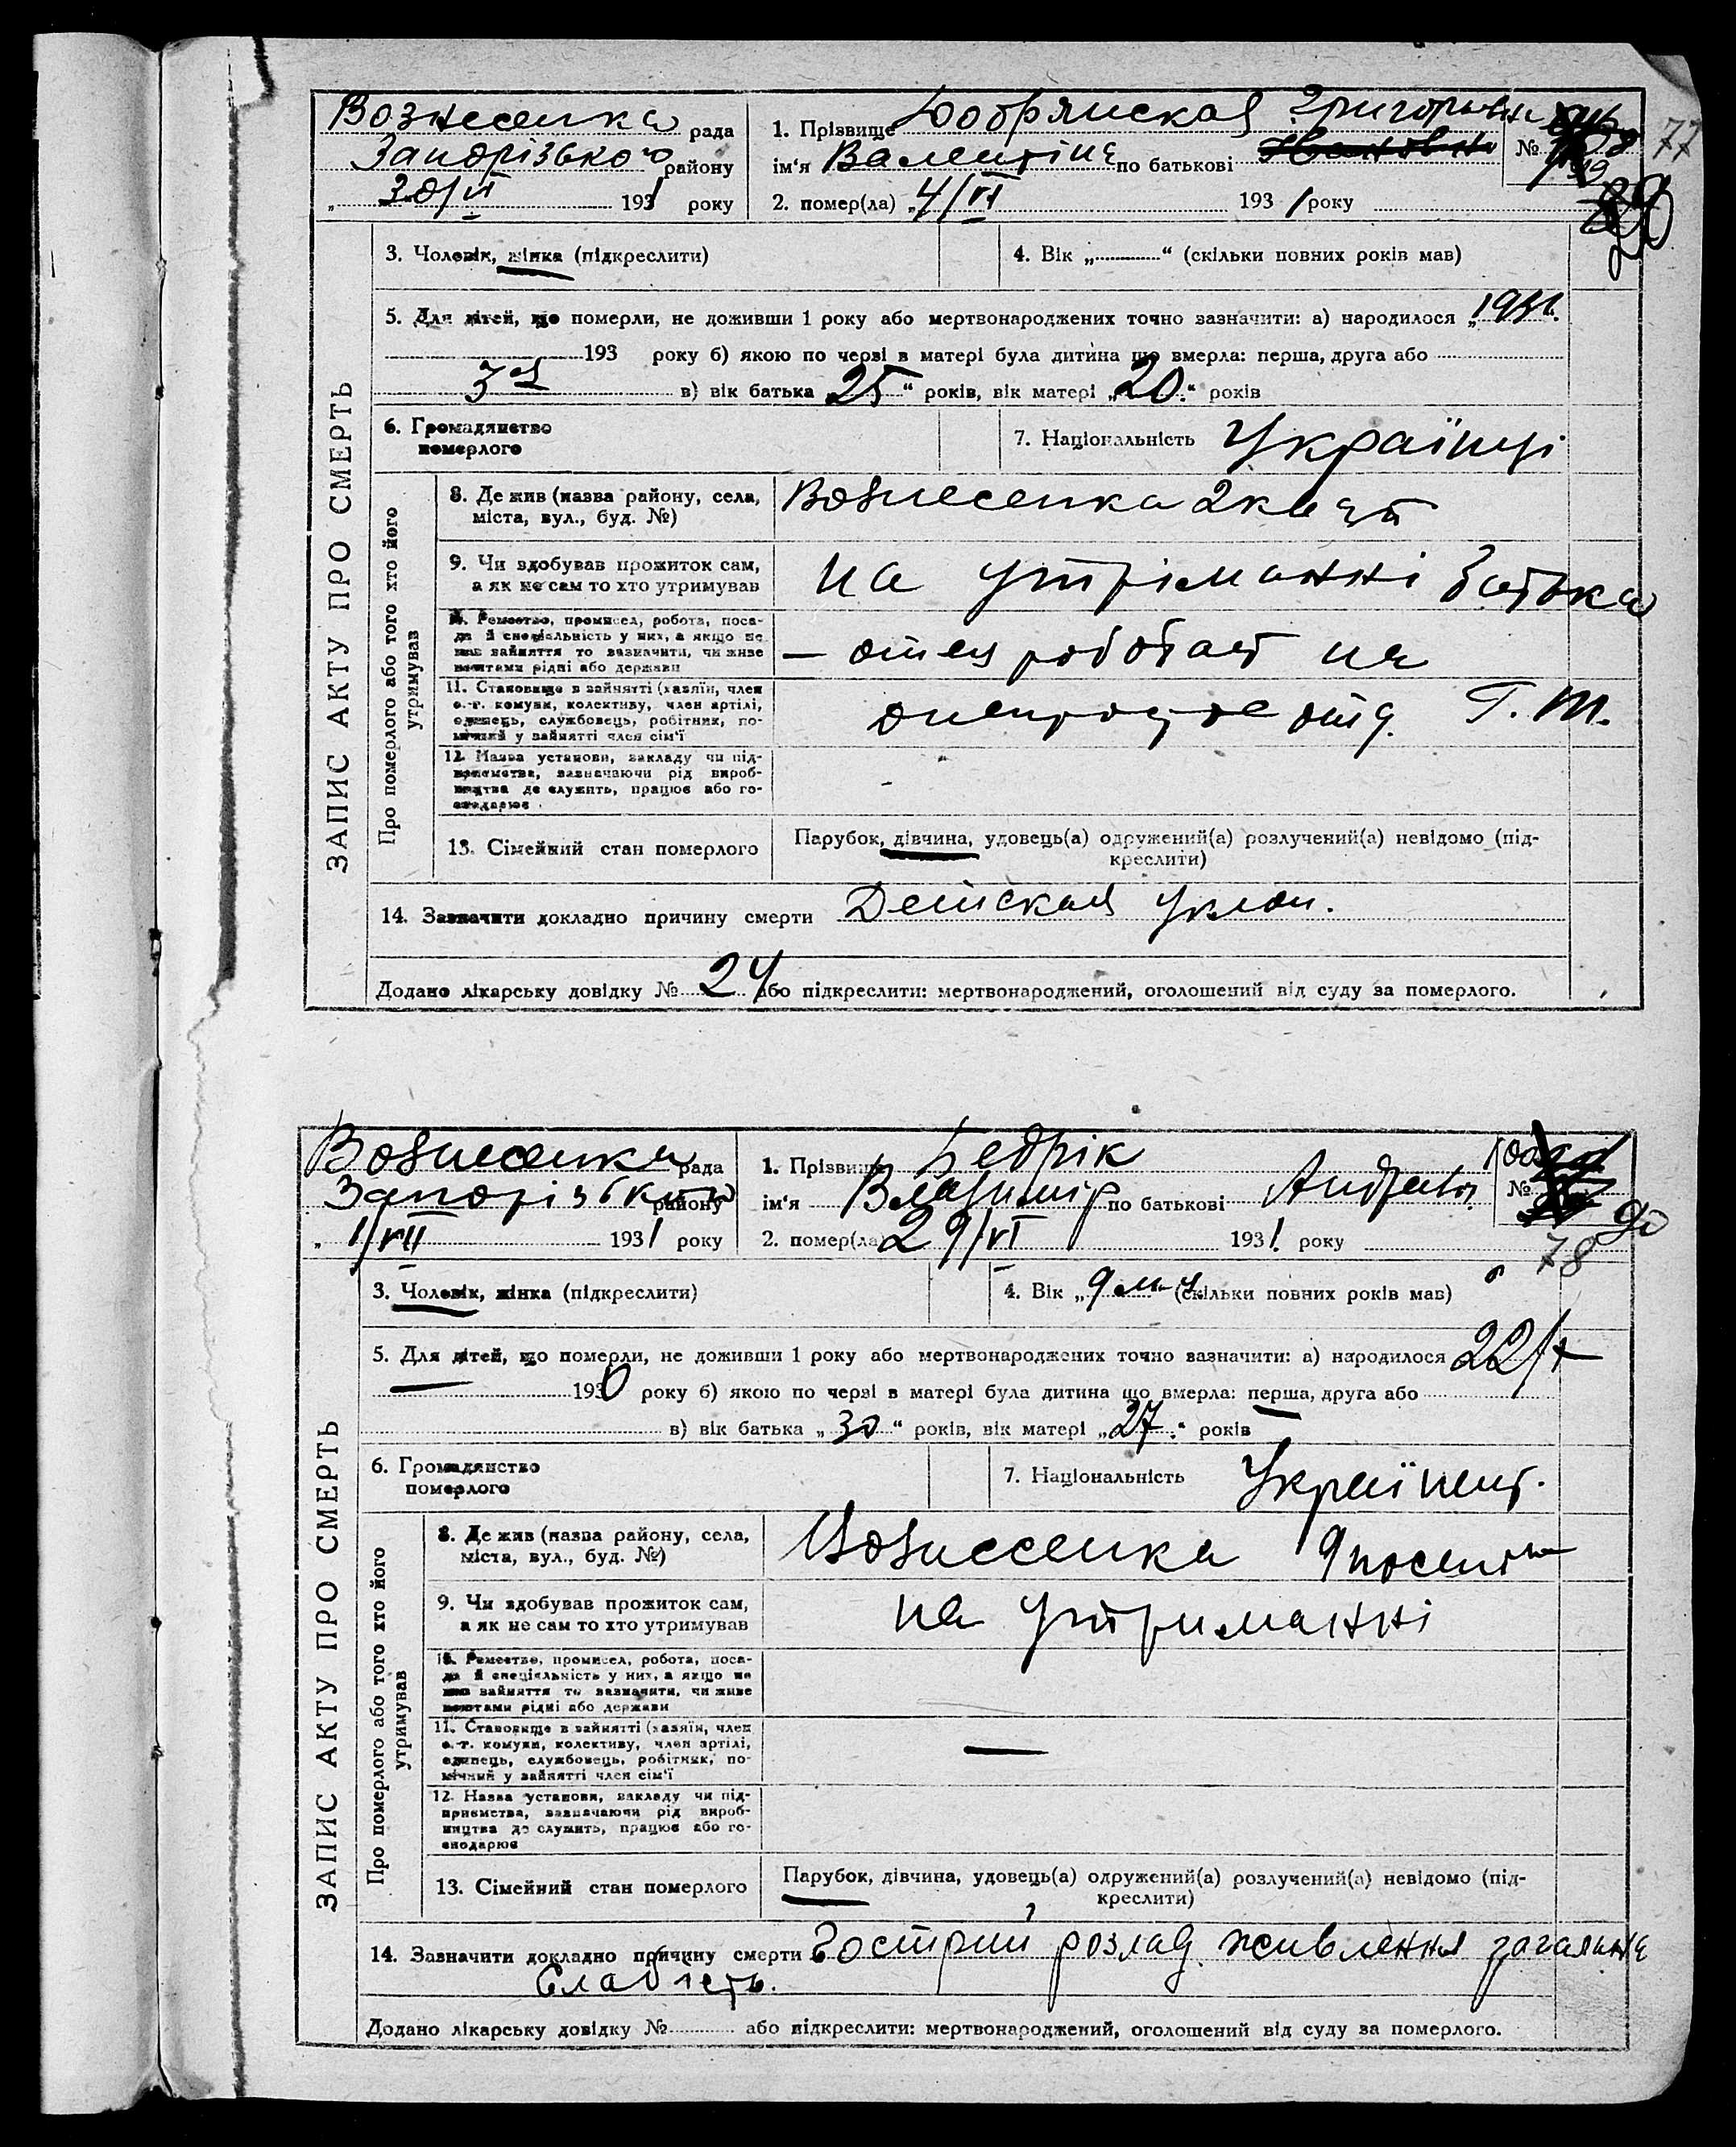 Вознесенка рада
Запорізького району
„ 30/VI 1931 року
1. Прізвище Добрянская Григорьевна
ім'я Валентіна по батькові
2. помер(ла) „4/VI 1931 року
№
77
ЗАПИС АКТУ ПРО СМЕРТЬ
3. Чоловік, жінка (підкреслити)
4. Вік „ “ (скільки повних років мав)
5. Для дітей, що померли, не доживши 1 року або мертвонароджених точно зазначити: а) народилося „1931.
193 року б) якою по черзі в матері була дитина що вмерла: перша, друга або
3я в) вік батька „25“ років, вік матері „20“ років
6. Громадянство
померлого
7. Національність Українці
Про померлого або того хто його
утримував
8. Де жив (назва району, села,
міста, вул., буд. №)
Вознесенка 2
9. Чи здобував прожиток сам,
а як не сам то хто утримував
на утріманні батька
10. Ремество, промисел, робота, поса-
да й спеціяльність у них, а якщо не
мав зайняття то зазначити, чи живе
коштами рідні або держави
— отец роботает на
11. Становище в зайнятті (хазяїн, член
с.-г. комуни, колективу, член артілі,
одинець, службовець, робітник, по-
мічний у зайнятті член сім'ї
отд. Г. Т.
12. Назва установи, закладу чи під-
приємства, зазначаючи рід вироб-
ництва де служить, працює або го-
сподарює
13. Сімейний стан померлого
Парубок, дівчина, удовець(а) одружений(а) розлучений(а) невідомо (під-
креслити)
14. Зазначити докладно причину смерти Детская
Додано лікарську довідку № 24 або підкреслити: мертвонароджений, оголошений від суду за померлого.
Вознесенка рада
Запорізького району
„ 1/VII 1931 року
1. Прізвище Бедрік
ім'я Владимір по батькові
2. помер(ла) 29/VI 1931. року
№
90
78
ЗАПИС АКТУ ПРО СМЕРТЬ
3. Чоловік, жінка (підкреслити)
4. Вік „ 9 м-ц (скільки повних років мав)
5. Для дітей, що померли, не доживши 1 року або мертвонароджених точно зазначити: а) народилося 22/X
1930 року б) якою по черзі в матері була дитина що вмерла: перша, друга або
в) вік батька „ 30 “ років, вік матері „27.“ років
6. Громадянство
померлого
7. Національність Українец.
Про померлого або того хто його
утримував
8. Де жив (назва району, села,
міста, вул., буд. №)
Вознесенка 9
9. Чи здобував прожиток сам,
а як не сам то хто утримував
на утриманні
10. Ремество, промисел, робота, поса-
да й спеціяльність у них, а якщо не
мав зайняття то зазначити, чи живе
коштами рідні або держави
11. Становище в зайнятті (хазяїн, член
с.-г. комуни, колективу, член артілі,
одинець, службовець, робітник, по-
мічний у зайнятті член сім'ї
—
12. Назва установи, закладу чи під-
приємства, зазначаючи рід вироб-
ництва де служить, працює або го-
сподарює
13. Сімейний стан померлого
Парубок, дівчина, удовець(а) одружений(а) розлучений(а) невідомо (під-
креслити)
14. Зазначити докладно причину смерти Гострий розлад живлення загальна
слабість.
Додано лікарську довідку № або підкреслити: мертвонароджений, оголошений від суду за померлого.